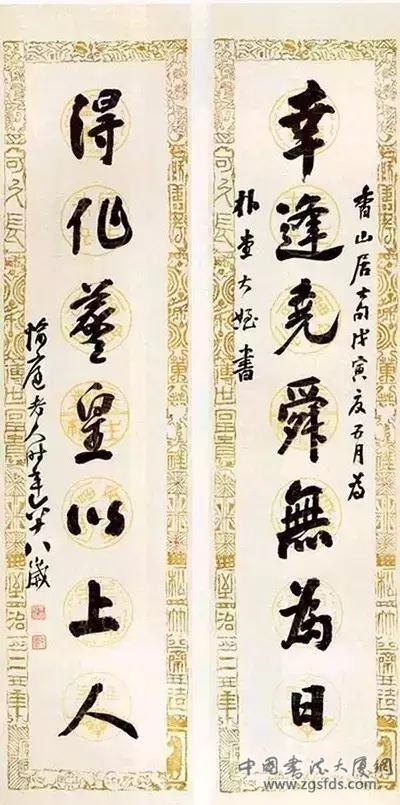 幸逢堯舜無為日
香山居士句戊寅夏五月為
朴堂大姪書
得作羲皇以上人
老人時年六十八歲
中国书法大厦網
www.zgsfds.com